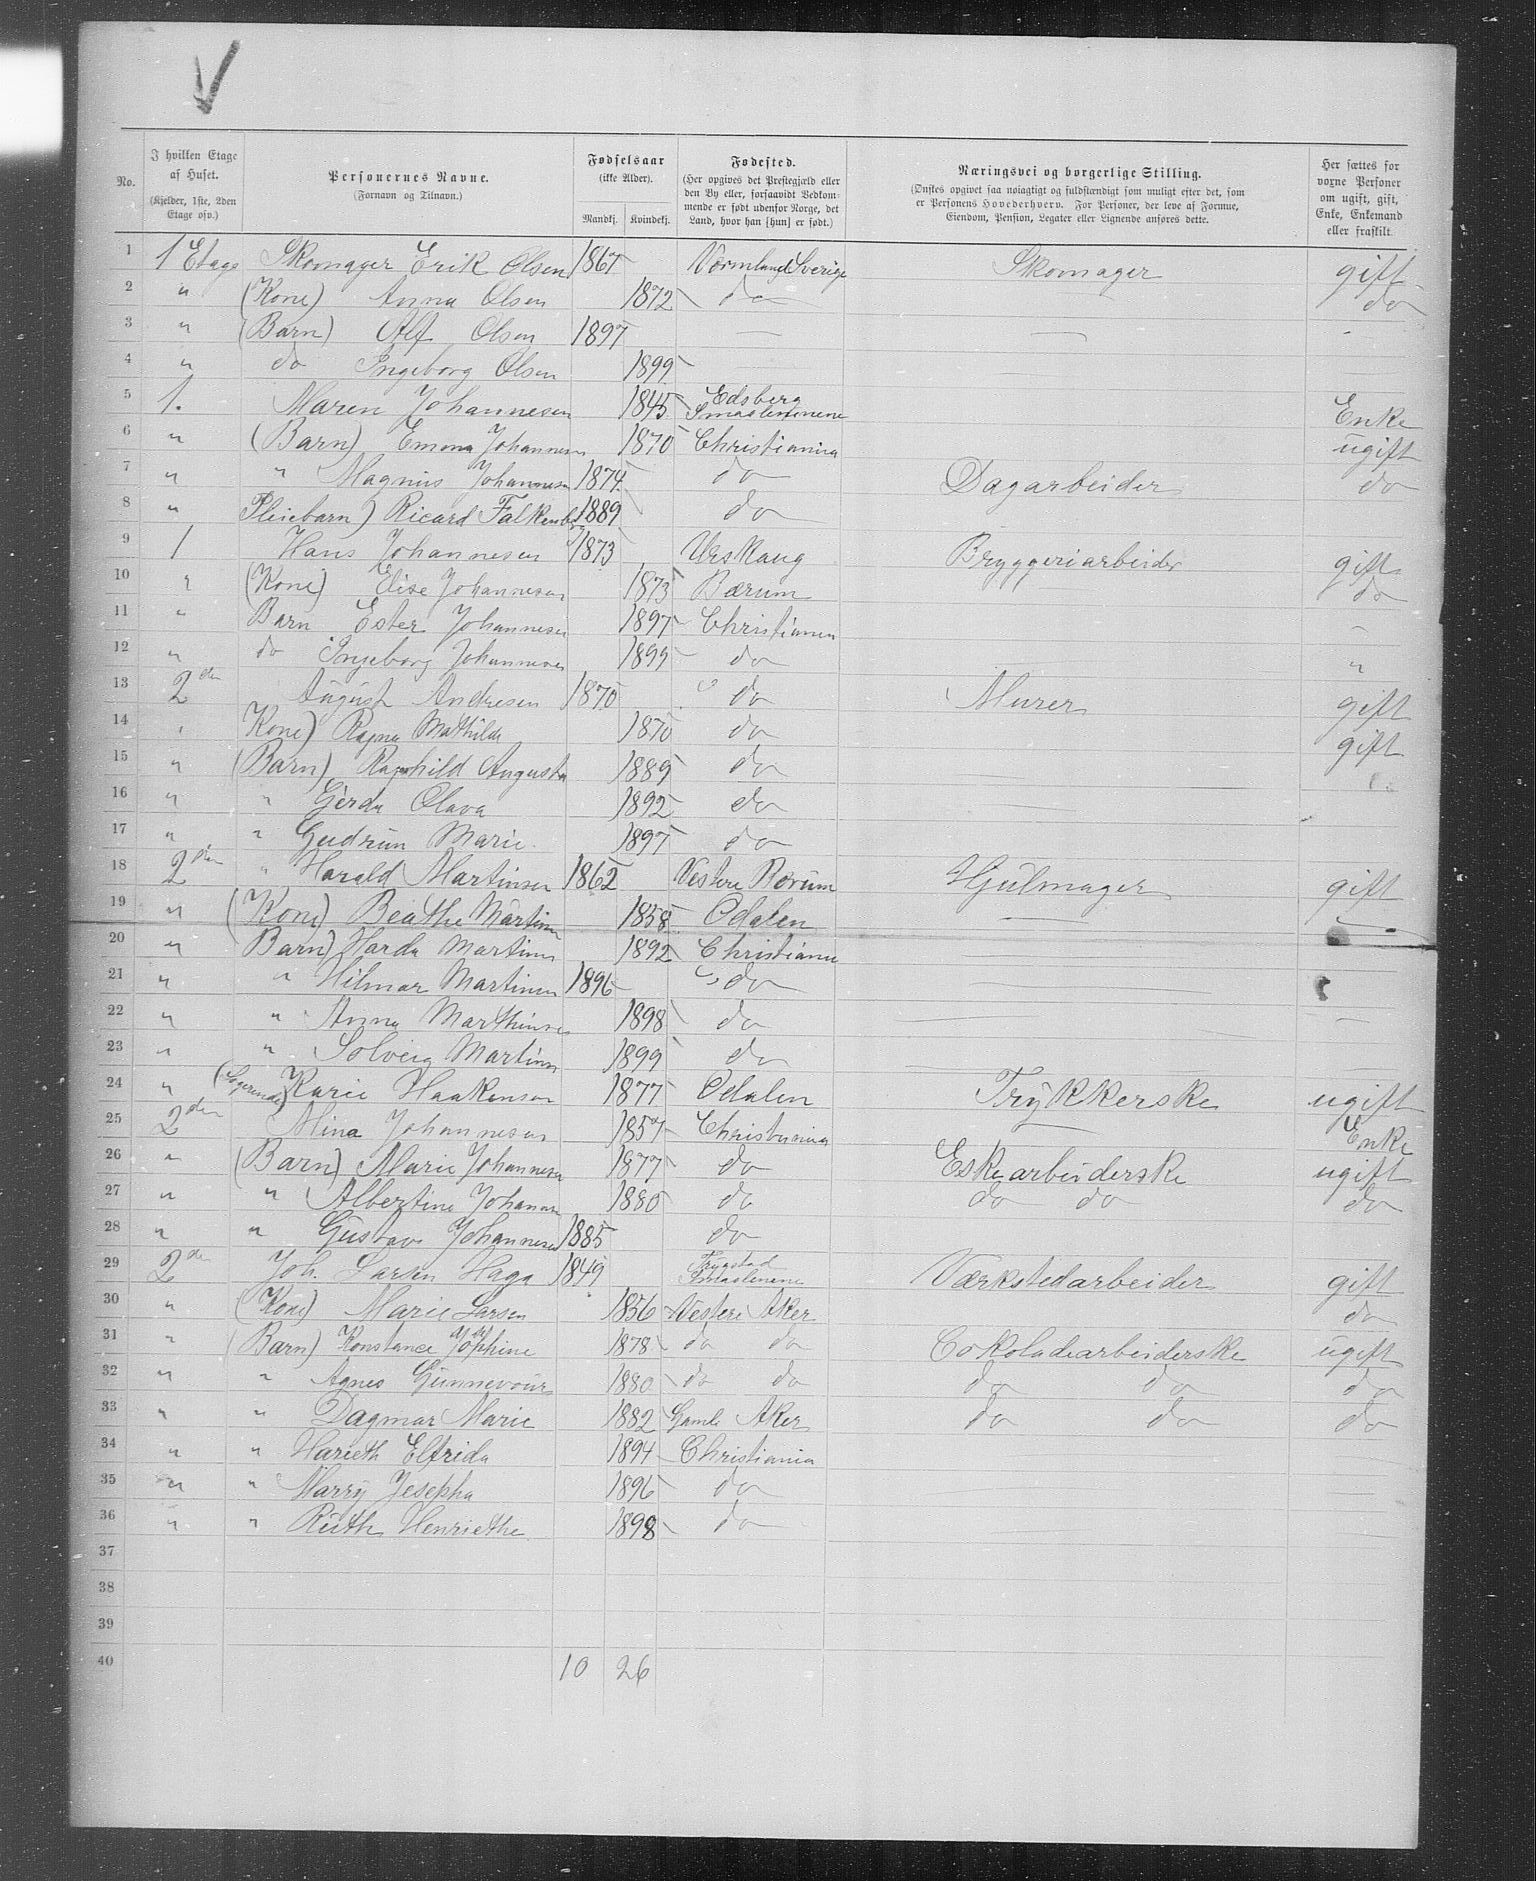 No.
I hvilken Etage af Huset.
(Kjelder, 1ste, 2den Etage osv.)
Personernes Navne.
(Fornavn og Tilnavn).
Fødselsaar
(ikke Alder).
Mandkj. Kvindekj.
Fødested.
(Her opgives det Prestegjæld eller den By eller, forsaavidt Vedkommende er født udenfor Norge, det Land, hvor han [hun] er født.)
Næringsvei og borgerlige Stilling.
(Ønskes opgivet saa nøiagtigt og fuldstændigt som muligt efter det, som er Personens Hovederhverv. For Personer, der leve af Formue, Eiendom, Pension, Legater eller Lignende anføres dette.
Her sættes for voxne Personer om ugift, gift, Enke, Enkemand eller fraskilt.
1 1 Etage Skomager Erik Olsen 1867 Vørmland Sverige Skomager gift
2 " (Kone) Anna Olsen 1872 do do
3 " (Barn) Alf Olsen 1897
4 " do Ingeborg Olsen 1899
5 1. Maren Johannesen 1845 Edsberg Smaalenene Enke
6 " (Barn) Emma Johannesen 1870 Christiania ugift
7 " " Magnus Johannesen 1874 do Dagarbeider do
8 " Pleiebarn) Ricard Falkenberg 1889 do
9 1 Hans Johannesen 1873 Urskaug Bryggeriarbeider gift
10 " (Kone) Elise Johannesen 1873 Bærum do
11 " Barn Ester Johannesen 1897 Christiania
12 " do Ingeborg Johannesen 1899 do "
13 2den August Andresen 1870 do Murer gift
14 " Kone) Ragna Mathilde 1870 do gift
15 " (Barn) Ragnhild Augusta 1889 do
16 " " Gerda Olava 1892 do
17 " " Gudrun Marie. 1897 do
18 2den " Harald Martinsen 1862 Vestre Borum Hjulmager gift
19 " (Kone) Beathe Martinsen 1858 Odalen
20 " Barn) Harda Martinsen 1892 Christiania
21 " " Hilmar Martinsen 1896 do
22 " " Anna Marthinsen 1898 do
23 " " Solveig Martinsen 1899 do
24 " (Logerende) Karie Haakensen 1877 Odalen Trykkerske ugift
25 2den Mina Johannesen 1857 Christiania Enke
26 " (Barn) Marie Johannesen 1877 do Eskearbeiderske ugift
27 " " Albertine Johannesen 1880 do do do do
28 " " Gustav Johannesen 1885 do
29 2den Joh. Larsen Haga 1849 Trygstad Smaalenene Værkstedarbeider gift
30 " (Kone) Marie Larsen 1856 Vestere Aker do
31 " (Barn) Konstance Josephine 1878 do do Cokoladearbeiderske ugift
32 " " Agnes Gunnevour 1880 do do do do do
33 " " Dagmar Marie 1882 Gamle Aker do do do
34 " " Harieth Elfrida 1894 Christiania
35 " " Harry Josepha 1896 do
36 " " Ruth Henriethe 1898 do
37
38
39
40 10 26